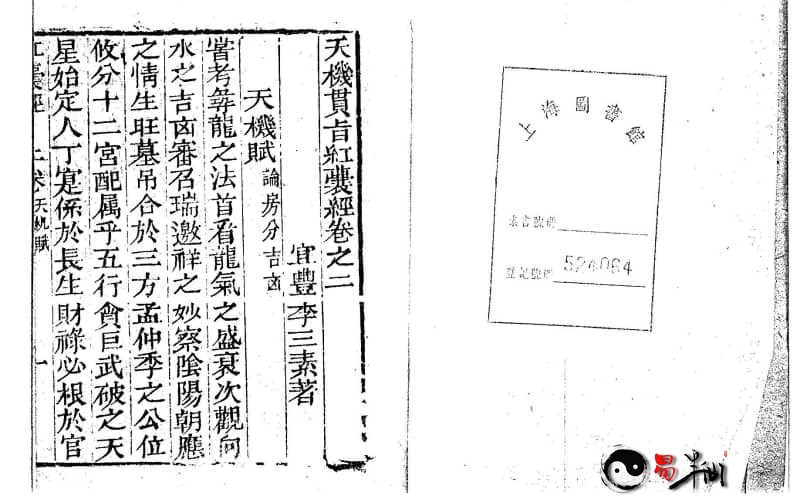 上海圖書館
索書號碼
登記號碼 524064
天機貫旨紅囊經卷之二
宜豐李三素著
天機賦 論房分吉凶
嘗考彝龍之法首看龍氣之盛衰次觀向
水之吉凶審召瑞邀祥之妙察陰陽朝應
之情生旺墓吊合於三方孟仲季之公位
攸分十二宮配属乎五行貪巨武破之天
星始定人丁寔係於長生財祿必根於官
紅囊經 二卷 天机賦 一
易